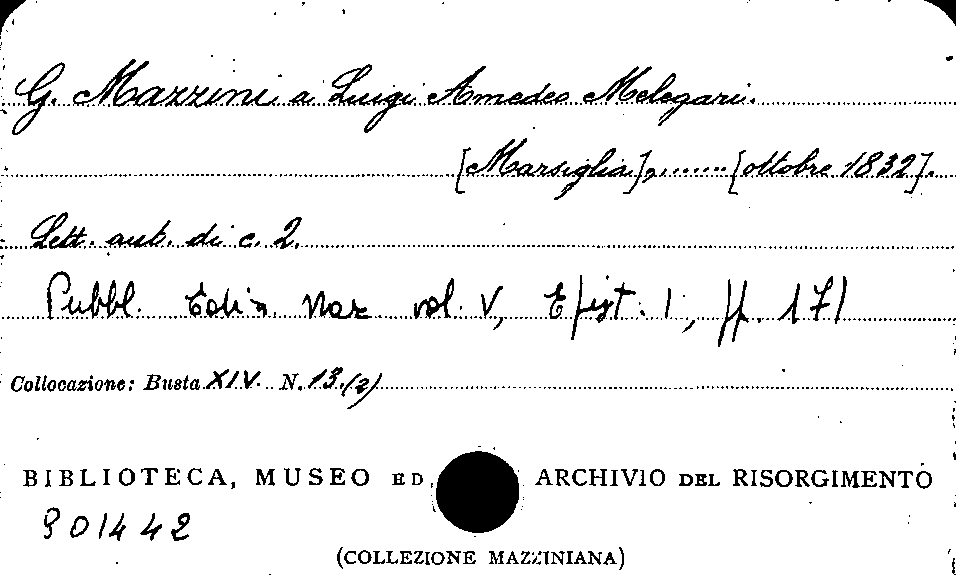 G. Mazzini a Luigi Amedeo Melegari.
[Marsiglia], ....... [ottobre 1832].
Lett. aut. di c. 2.
Pubbl. Ediz. Naz. vol. V, Epist. I, pp. 171
Collocazione: Busta XIV. N. 13.(2)
BIBLIOTECA, MUSEO ED ARCHIVIO DEL RISORGIMENTO
901442
(COLLEZIONE MAZZINIANA)